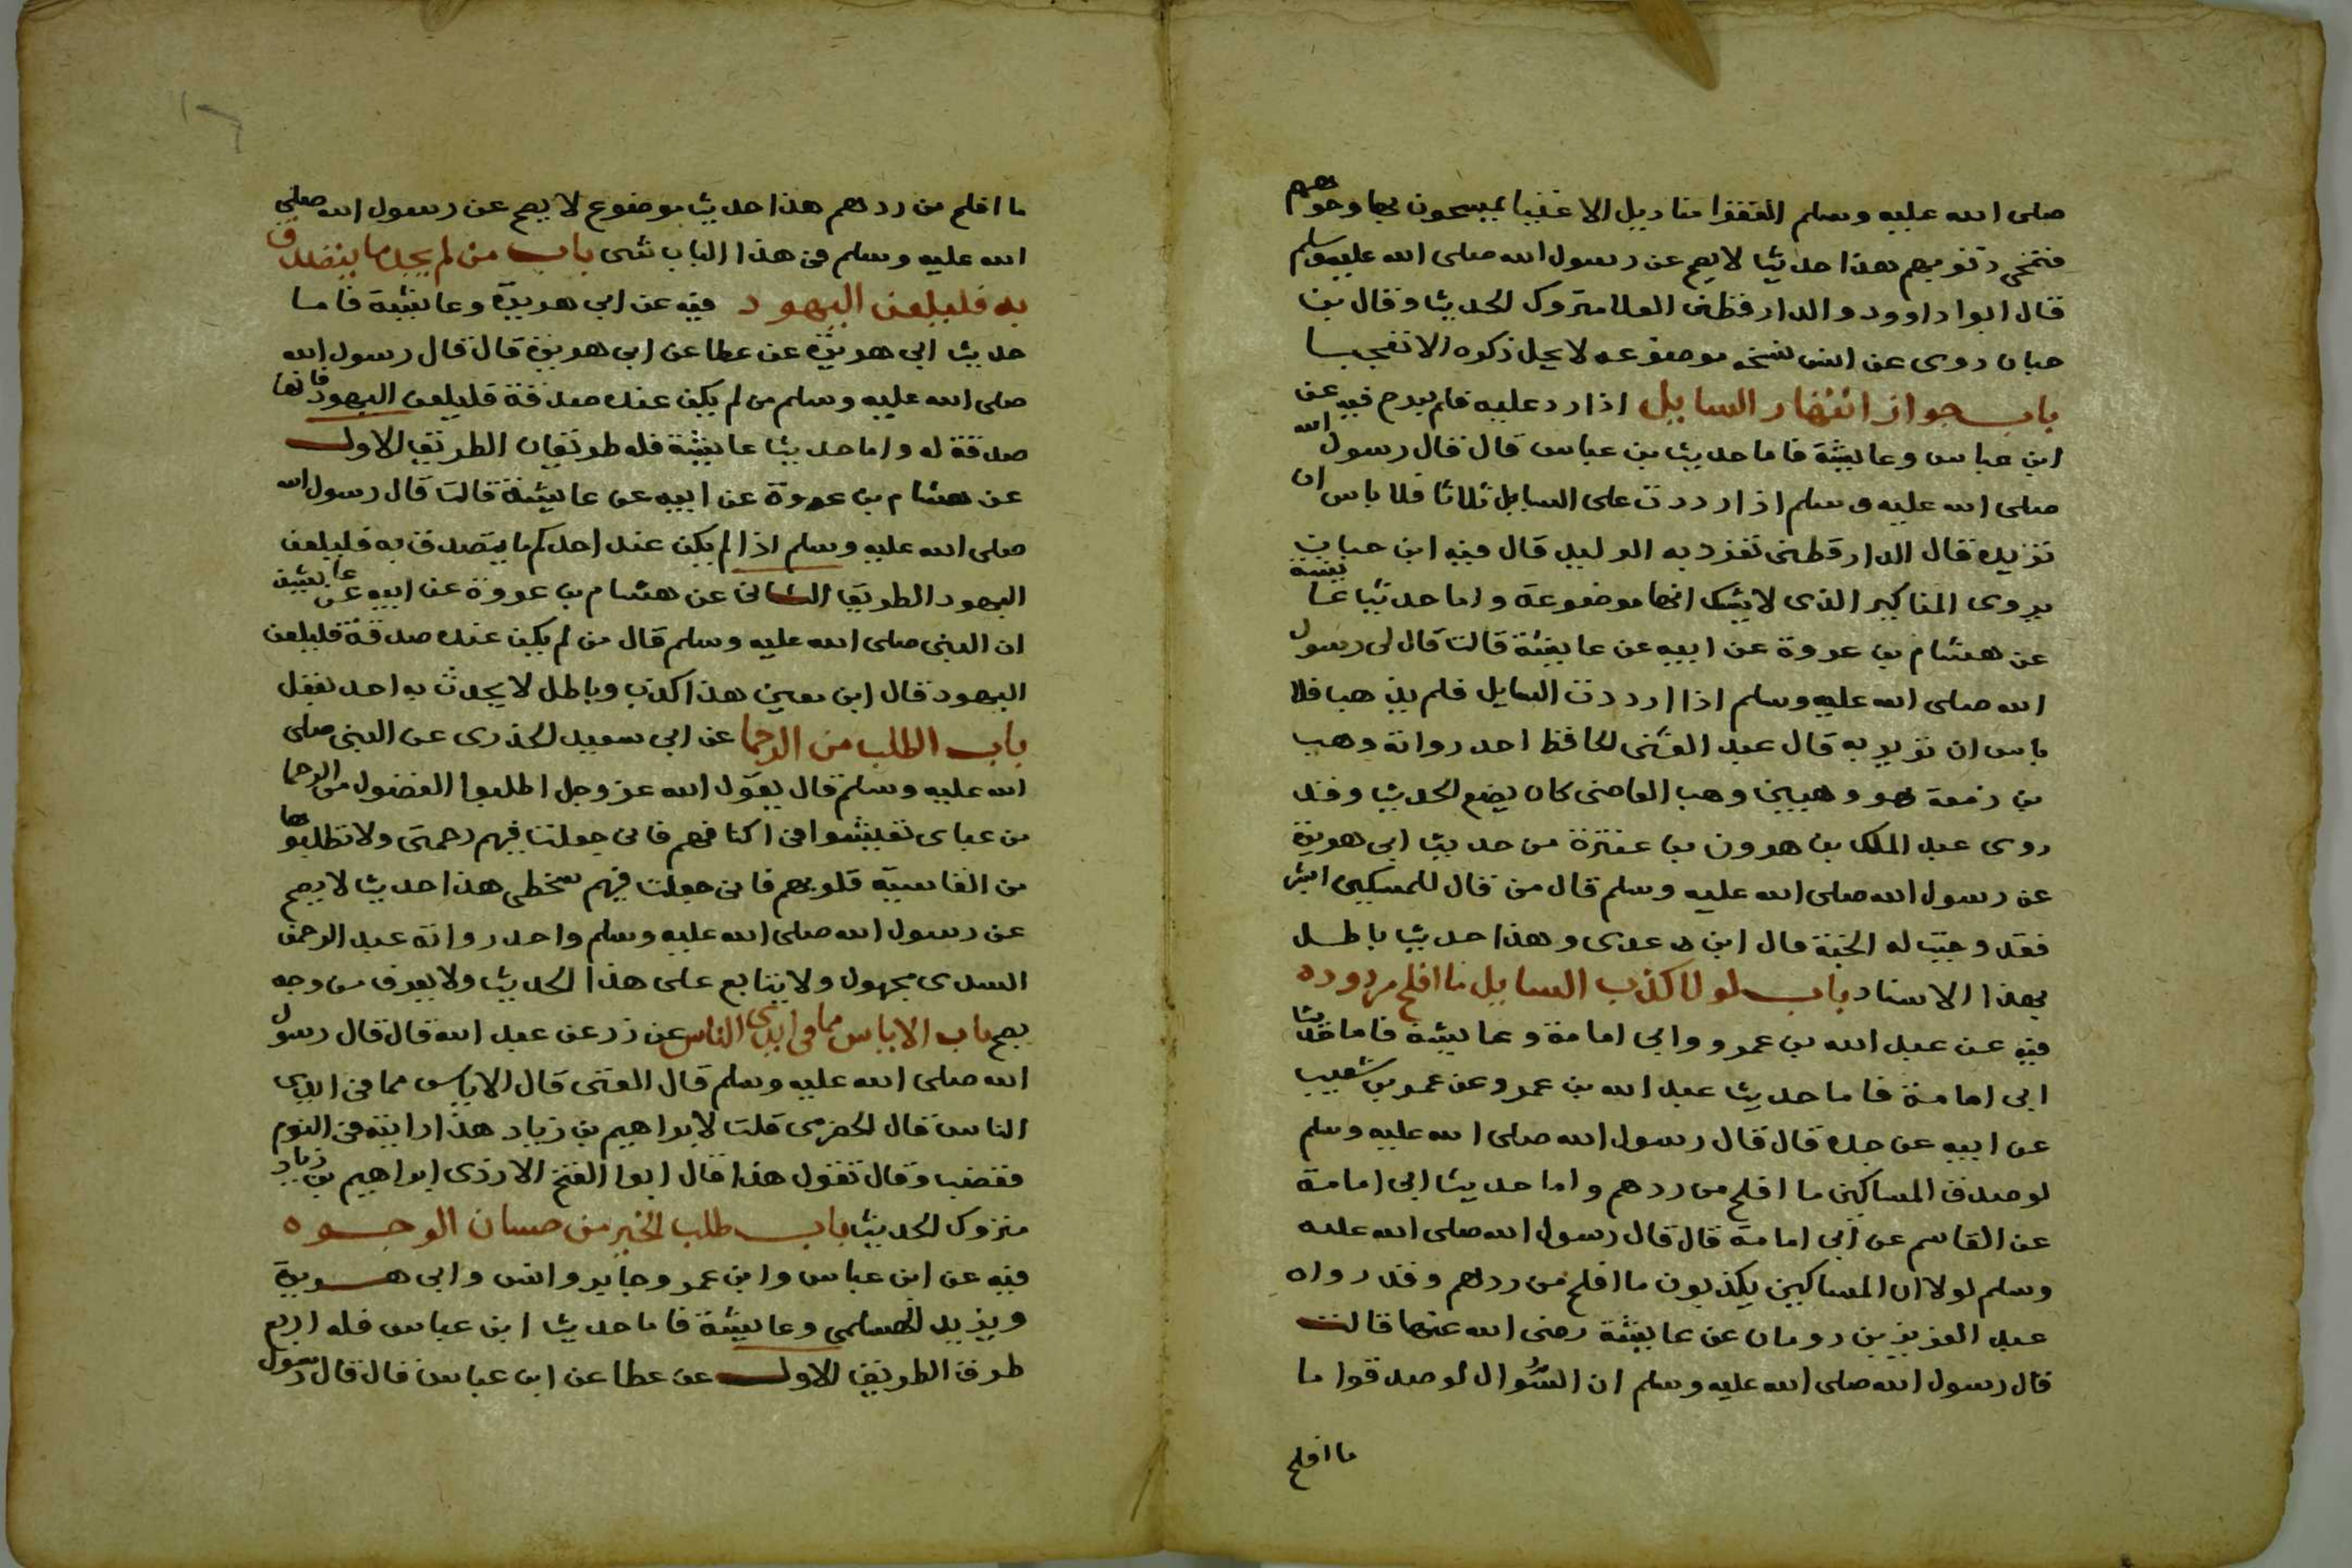 صلى الله عليه وسلم الفقرا مناديل الاغنيا يمسحون بها وجوههم
فتمحى ذنوبهم هذا حديث لا يصح عن رسول الله صلى الله عليه وسلم
قال ابوا داوود والدارقطنى العلا متروك الحديث وقال بن
حبان روى عن انس نسخه موضوعه لا يحل ذكره الا تعجبا
باب جواز انتهار السايل اذا رد عليه فلم يبرح فيه عن
ابن عباس وعايشة فاما حديث بن عباس قال قال رسول الله
صلى الله عليه وسلم اذا رددت على السايل ثلاثا فلا باس ان
تزبره قال الدارقطنى تفرد به الوليد قال فيه ابن حبان
يروى المناكير الذى لا يشك انها موضوعة واما حديث عايشة
عن هشام بن عروة عن ابيه عن عايشة قالت قال لى رسول
الله صلى الله عليه وسلم اذا رددت السايل فلم يذهب فلا
باس ان تزبر به قال عبد الغنى الحافظ احد رواته وهب
بن زمعة هو وهيبن وهب القاضى كان يضع الحديث وقد
روى عبد الملك بن هرون بن عنترة من حديث ابى هريرة
عن رسول الله صلى الله عليه وسلم قال من قال للمسكين ابشر
فقد وجبت له الجنة قال ابن عدى وهذا حديث باطل
بهذا الاسناد باب لولا كذب السايل ما افلح مردوده
فيه عن عبد الله بن عمرو وابى امامة وعايشة فاما حديث
ابى امامة فاما حديث عبد الله بن عمرو عن عمرو بن شعيب
عن ابيه عن جده قال قال رسول الله صلى الله عليه وسلم
لو صدق المساكين ما افلح من ردهم واما حديث ابى امامة
عن القاسم عن ابى امامة قال قال رسول الله صلى الله عليه
وسلم لولا ان المساكين يكذبون ما افلح من ردهم وقد رواه
عبد العزيز بن رومان عن عايشة رضى الله عنها قالت
قال رسول الله صلى الله عليه وسلم ان السُّوال لو صدقوا ما
ما افلح
ما افلح من ردهم هذا حديث موضوع لا يصح عن رسول الله صلى
الله عليه وسلم فى هذا الباب شى باب من لم يجد ما يتصدق
به فليلعن اليهود فيه عن ابى هريرة وعايشة فاما
حديث ابى هريرة عن عطا عن ابى هريرة قال قال رسول الله
صلى الله عليه وسلم من لم يكن عنده صدقة فليلعن اليهود فانها
صدقة له واما حديث عايشة فله طريقان الطريق الاول
عن هشام بن عروة عن ابيه عن عايشة قالت قال رسول الله
صلى الله عليه وسلم اذا لم يكن عند احدكم ما يتصدق به فليلعن
اليهود الطريق الثانى عن هشام بن عروة عن ابيه عن عايشة
ان النبى صلى الله عليه وسلم قال من لم يكن عنده صدقة فليلعن
اليهود قال ابن معين هذا كذب وباطل لا يحدث به احد يعقل
باب الطلب من الرحما عن ابى سعيد الخذرى عن النبى صلى
الله عليه وسلم قال يقول الله عز وجل اطلبوا الفضول من الرحما
من عبادى تعيشوا فى اكنافهم فانى جعلت فيهم رحمتى ولا تطلبوها
من القاسية قلوبهم فانى جعلت فيهم سخطى هذا حديث لا يصح
عن رسول الله صلى الله عليه وسلم واحد رواته عبد الرحمن
السدى مجهول ولا يتابع على هذا الحديث ولا يعرف من وجه
يصح باب الاياس مما فى ايدى الناس عن زر عن عبد الله قال قال رسول
الله صلى الله عليه وسلم قال الغنى قال الاياس مما فى ايدى
الناس قال الحضرمى قلت لابراهيم بن زياد هذا رايته فى النوم
فغضب وقال تقول هذا قال ابوا الفتح الازدى ابراهيم بن زياد
متروك الحديث باب طلب الخير من حسان الوجوه
فيه عن ابن عباس وابن عمر وجابر وانس وابى هريرة
ويزيد القسملى وعايشة فاما حديث ابن عباس فله اربع
طرق الطريق الاول عن عطا عن ابن عباس قال قال رسول